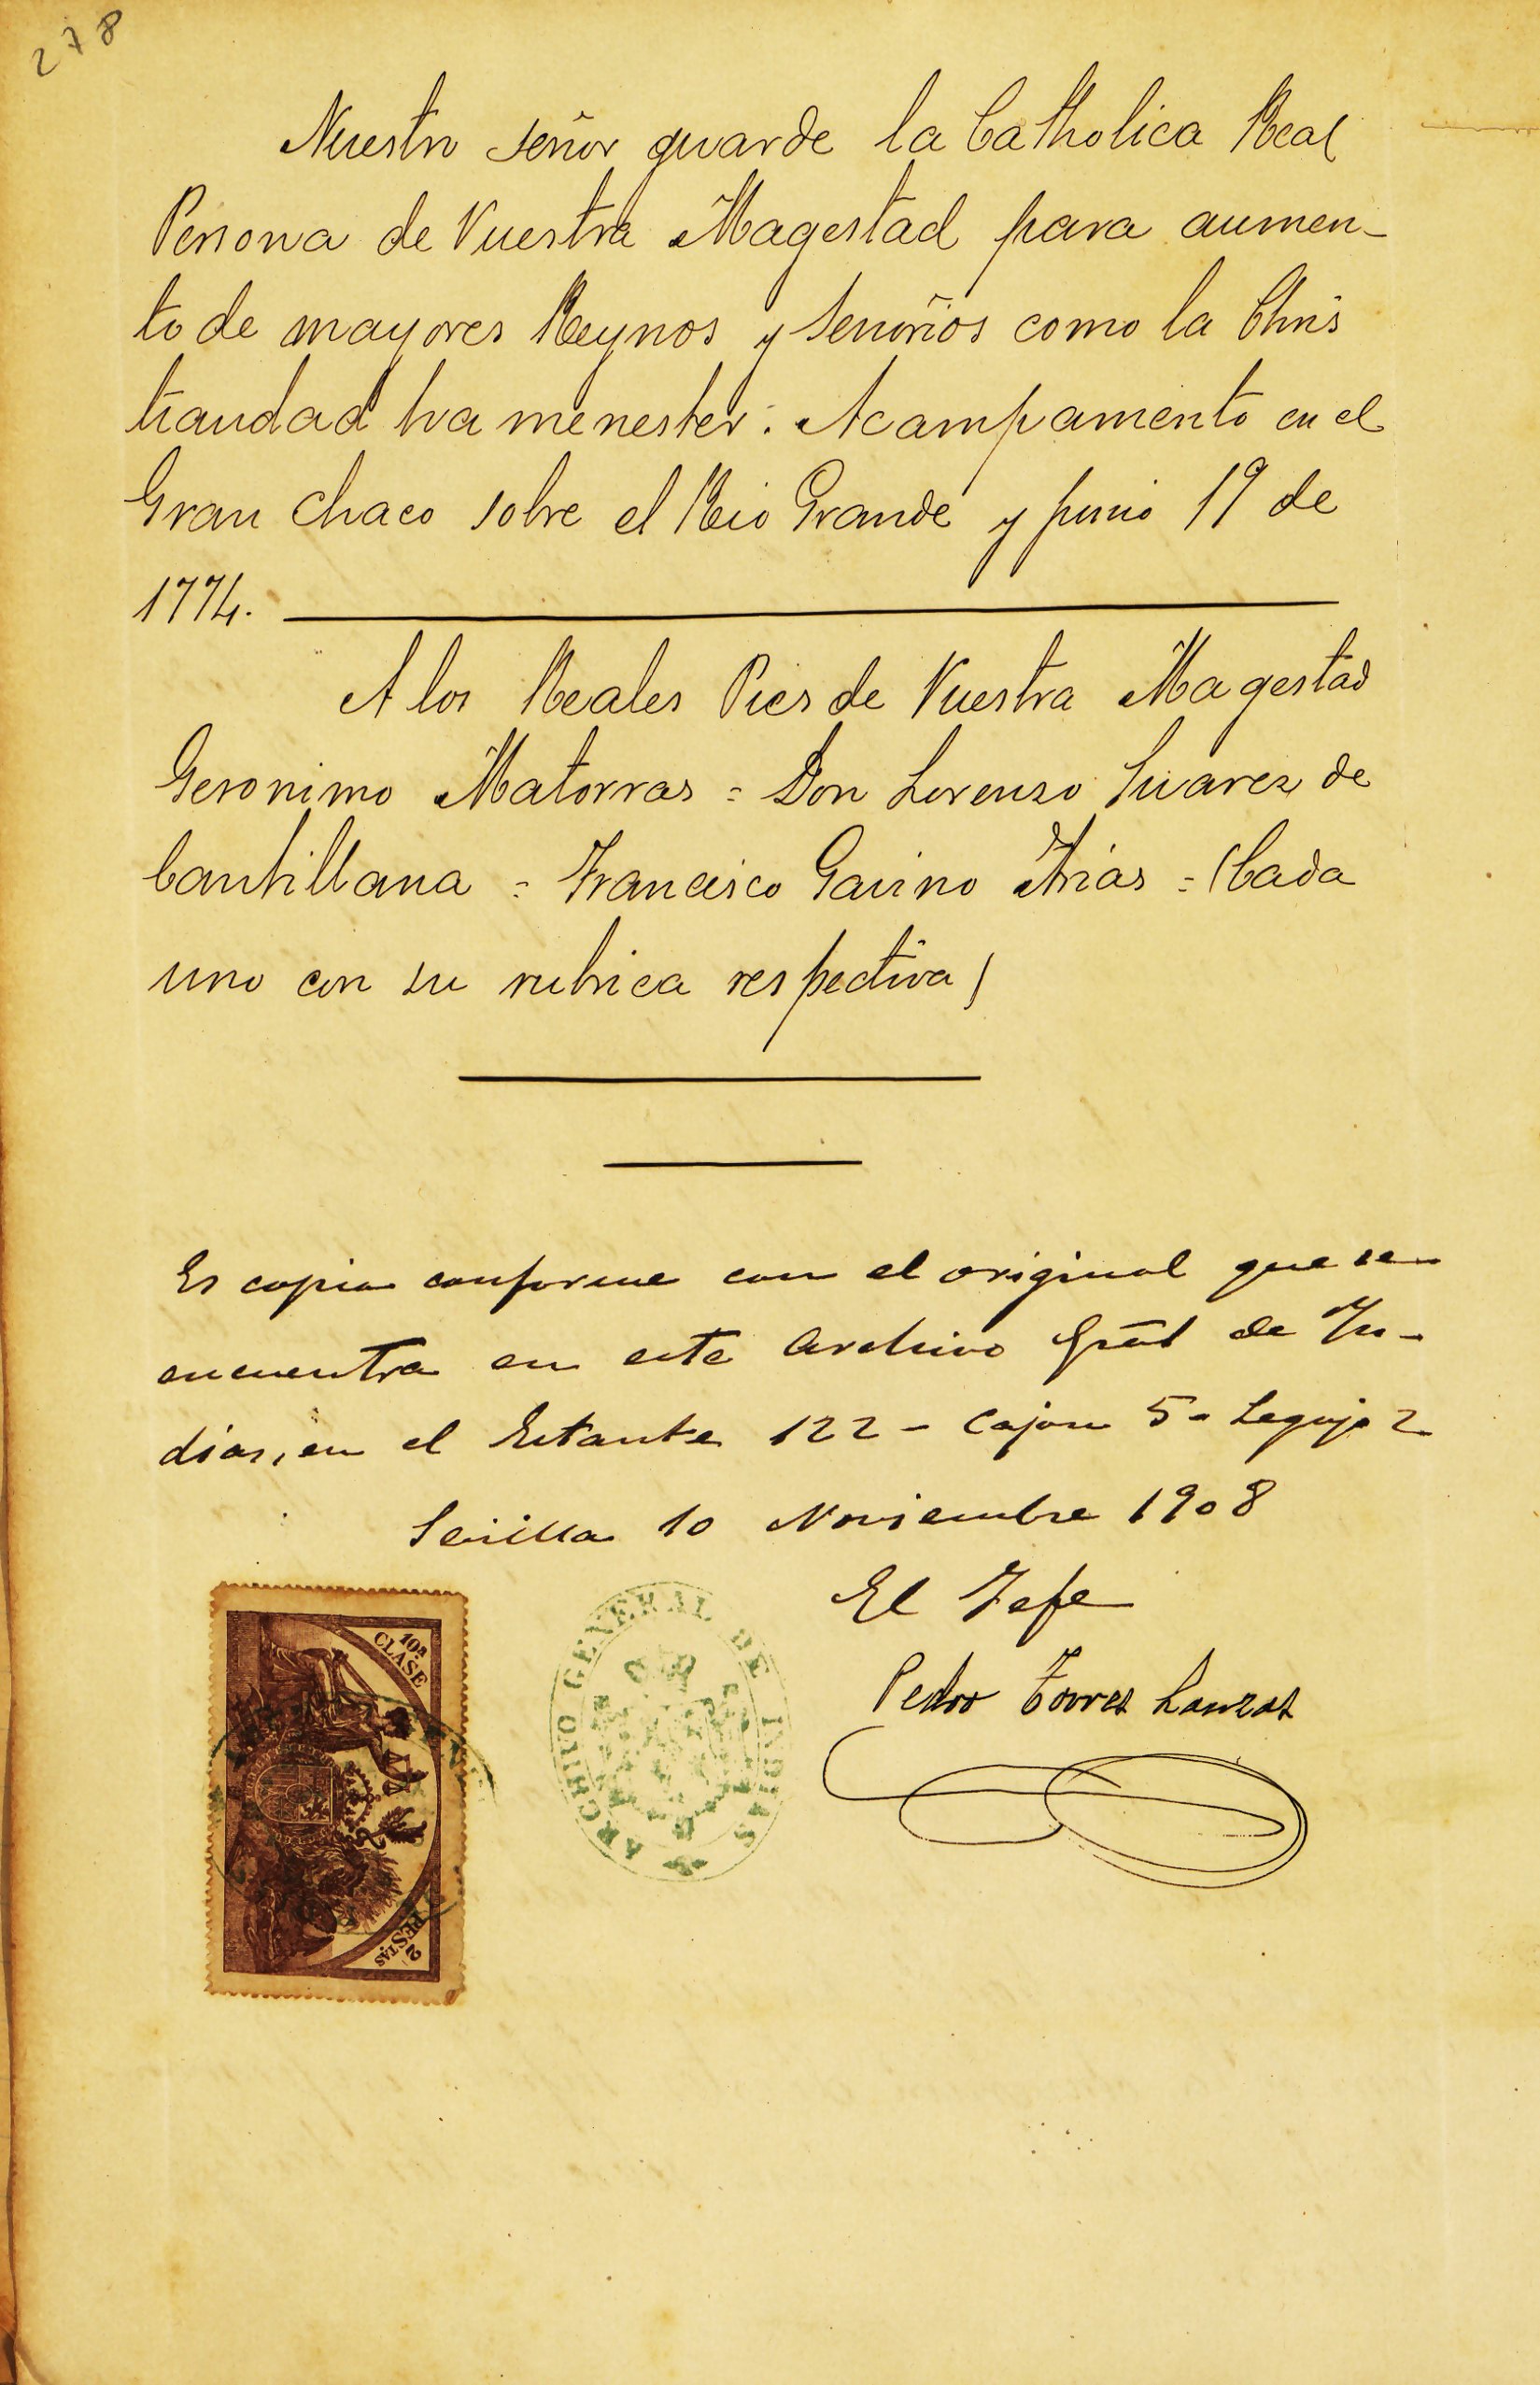 278
Nuestro señor guarde la Catholica Real
Persona de Vuestra Magestad para aumen-
to de mayores Reynos y señorios como la Chris
tiandad ha menester: Acampamento en el
Gran Chaco sobre el Rio Grande y Junio 19 de
1774.
A los Reales Pies de Vuestra Magestad
Geronimo Matorras = Don Lorenzo Suarez de
Cantillana = Francisco Gavino Arias = (Cada
uno con su rubrica respectiva)
Es copia conforme con el original que se
encuentra en este Archivo Gräl de In-
dias, en el Estante 122 - Cajon 5 - Legajo 2
Sevilla 10 Noviembre 1908
El Jefe
Pedro Torres Lanzas
10ª
CLASE
2
PESTAS
ARCHIVO GENERAL DE INDIAS